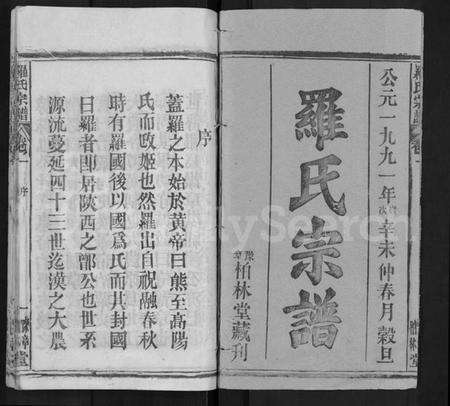 公元一九九一年歲辛未仲春月穀旦
羅氏宗譜
豫章柏林堂藏刊
序
蓋羅之本始於黃帝曰熊至高陽
氏而改姬也然羅出自祝融春秋
時有羅國後以國爲氏而其封國
曰羅者即居陝西之鄮公也世系
源流蔓延四十三世迄漢之大農
羅氏宗譜
卷一
序
FamilySearch